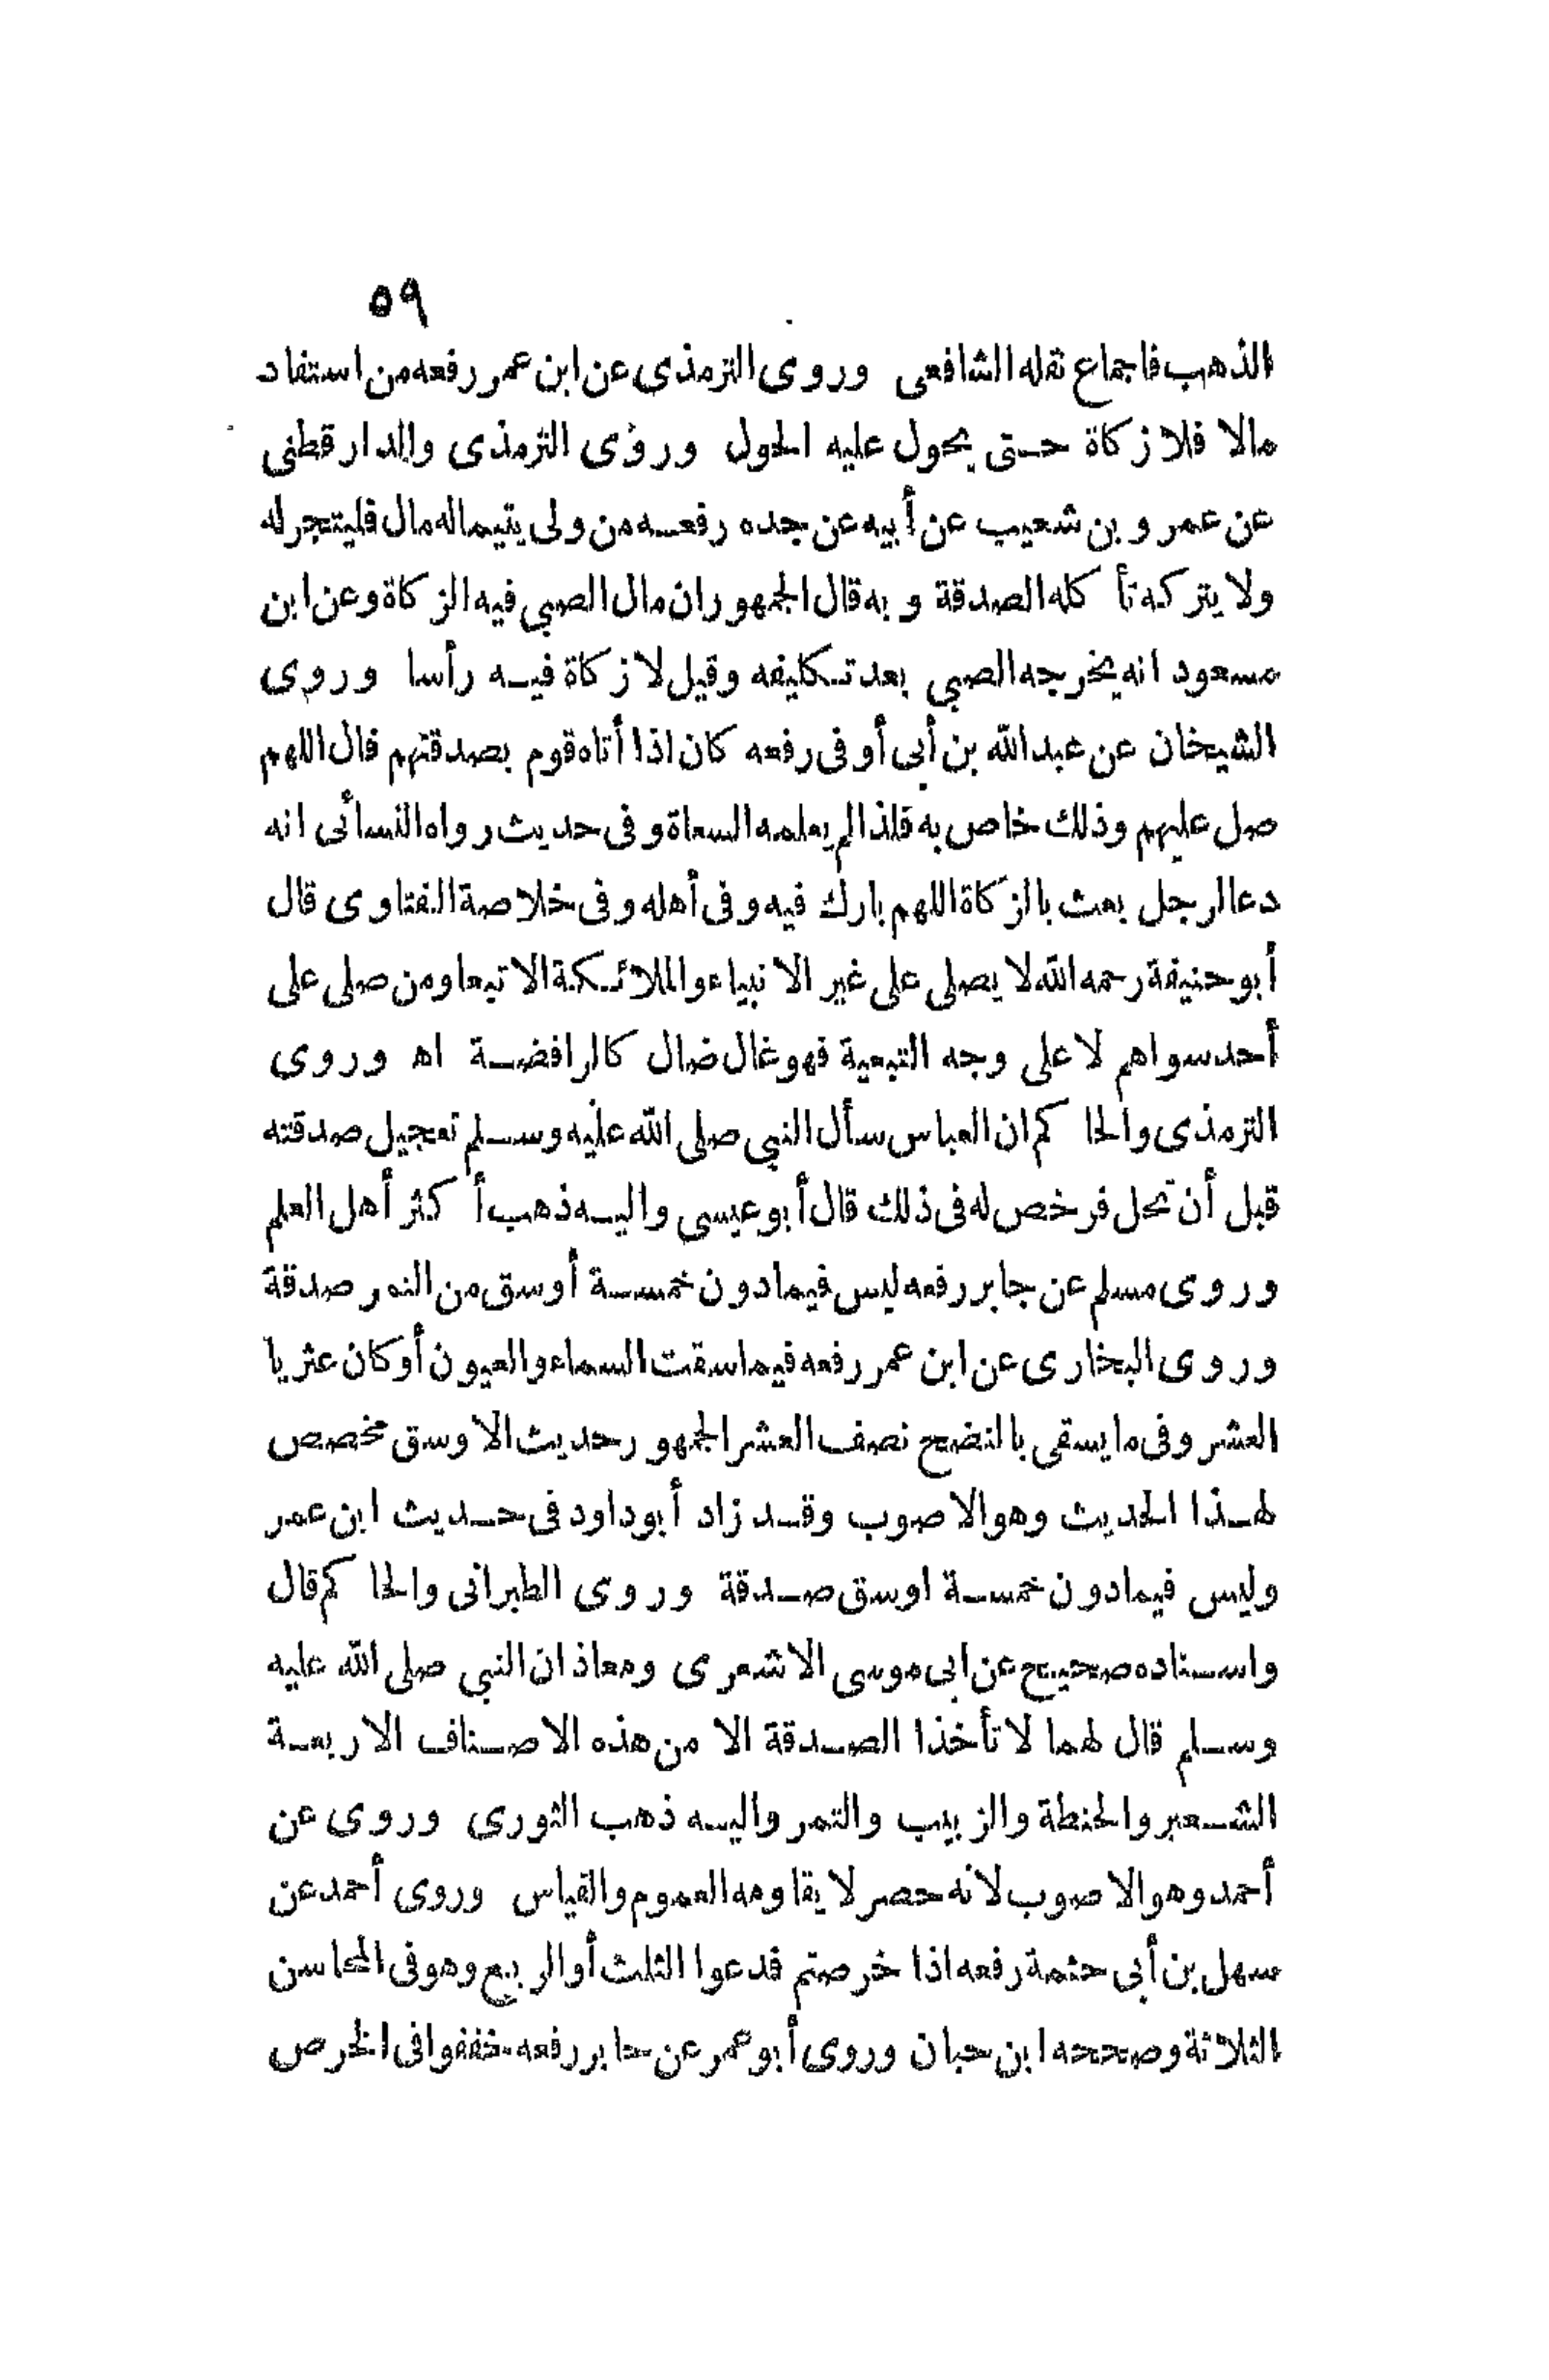 ٥٩
الذهب فاجماع نقله الشافعى وروى الترمذى عن ابن عمر رفعه من استفاد
مالا فلا زكاة حتى يحول عليه الحول وروى الترمذى والدارقطنى
عن عمرو بن شعيب عن أبيه عن جده رفعه من ولى يتيما له مال فليتجر له
ولا يتركه تأكله الصدقة وبه قال الجمهور ان مال الصبى فيه الزكاة وعن ابن
مسعود انه يخرجه الصبى بعد تكليفه وقيل لا زكاة فيه رأسا وروى
الشيخان عن عبد الله بن أبى أوفى رفعه كان اذا أتاه قوم بصدقتهم قال اللهم
صل عليهم وذلك خاص به فلذا لم يعلمه السعاة وفى حديث رواه النسائى انه
دعا لرجل بعث بالزكاة اللهم بارك فيه وفى أهله وفى خلاصة الفتاوى قال
أبو حنيفة رحمه الله لا يصلى على غير الانبياء والملائكة الا تبعا ومن صلى على
أحد سواهم لا على وجه التبعية فهو غال ضال كالرافضة اه وروى
الترمذى والحاكم ان العباس سأل النبى صلى الله عليه وسلم تعجيل صدقته
قبل أن تحل فرخص له فى ذلك قال أبو عيسى واليه ذهب أكثر أهل العلم
وروى مسلم عن جابر رفعه ليس فيما دون خمسة أوسق من التمر صدقة
وروى البخارى عن ابن عمر رفعه فيما سقت السماء والعيون أو كان عثريا
العشر وفى ما يسقى بالنضح نصف العشر الجمهور حديث الاوسق مخصص
لهذا الحديث وهو الاصوب وقد زاد أبو داود فى حديث ابن عمر
وليس فيما دون خمسة اوسق صدقة وروى الطبرانى والحاكم قال
واسناده صحيح عن ابى موسى الاشعرى ومعاذ ان النبى صلى الله عليه
وسلم قال لهما لا تأخذا الصدقة الا من هذه الاصناف الاربعة
الشعير والحنطة والزبيب والتمر واليه ذهب الثورى وروى عن
أحمد وهو الاصوب لانه حصر لا يقاومه العموم والقياس وروى أحمد عن
سهل بن أبى حثمة رفعه اذا خرصتم فدعوا الثلث أو الربع وهو فى المحاسن
الثلاثة وصححه ابن حبان وروى أبو عمر عن جابر رفعه خففوا فى الخرص